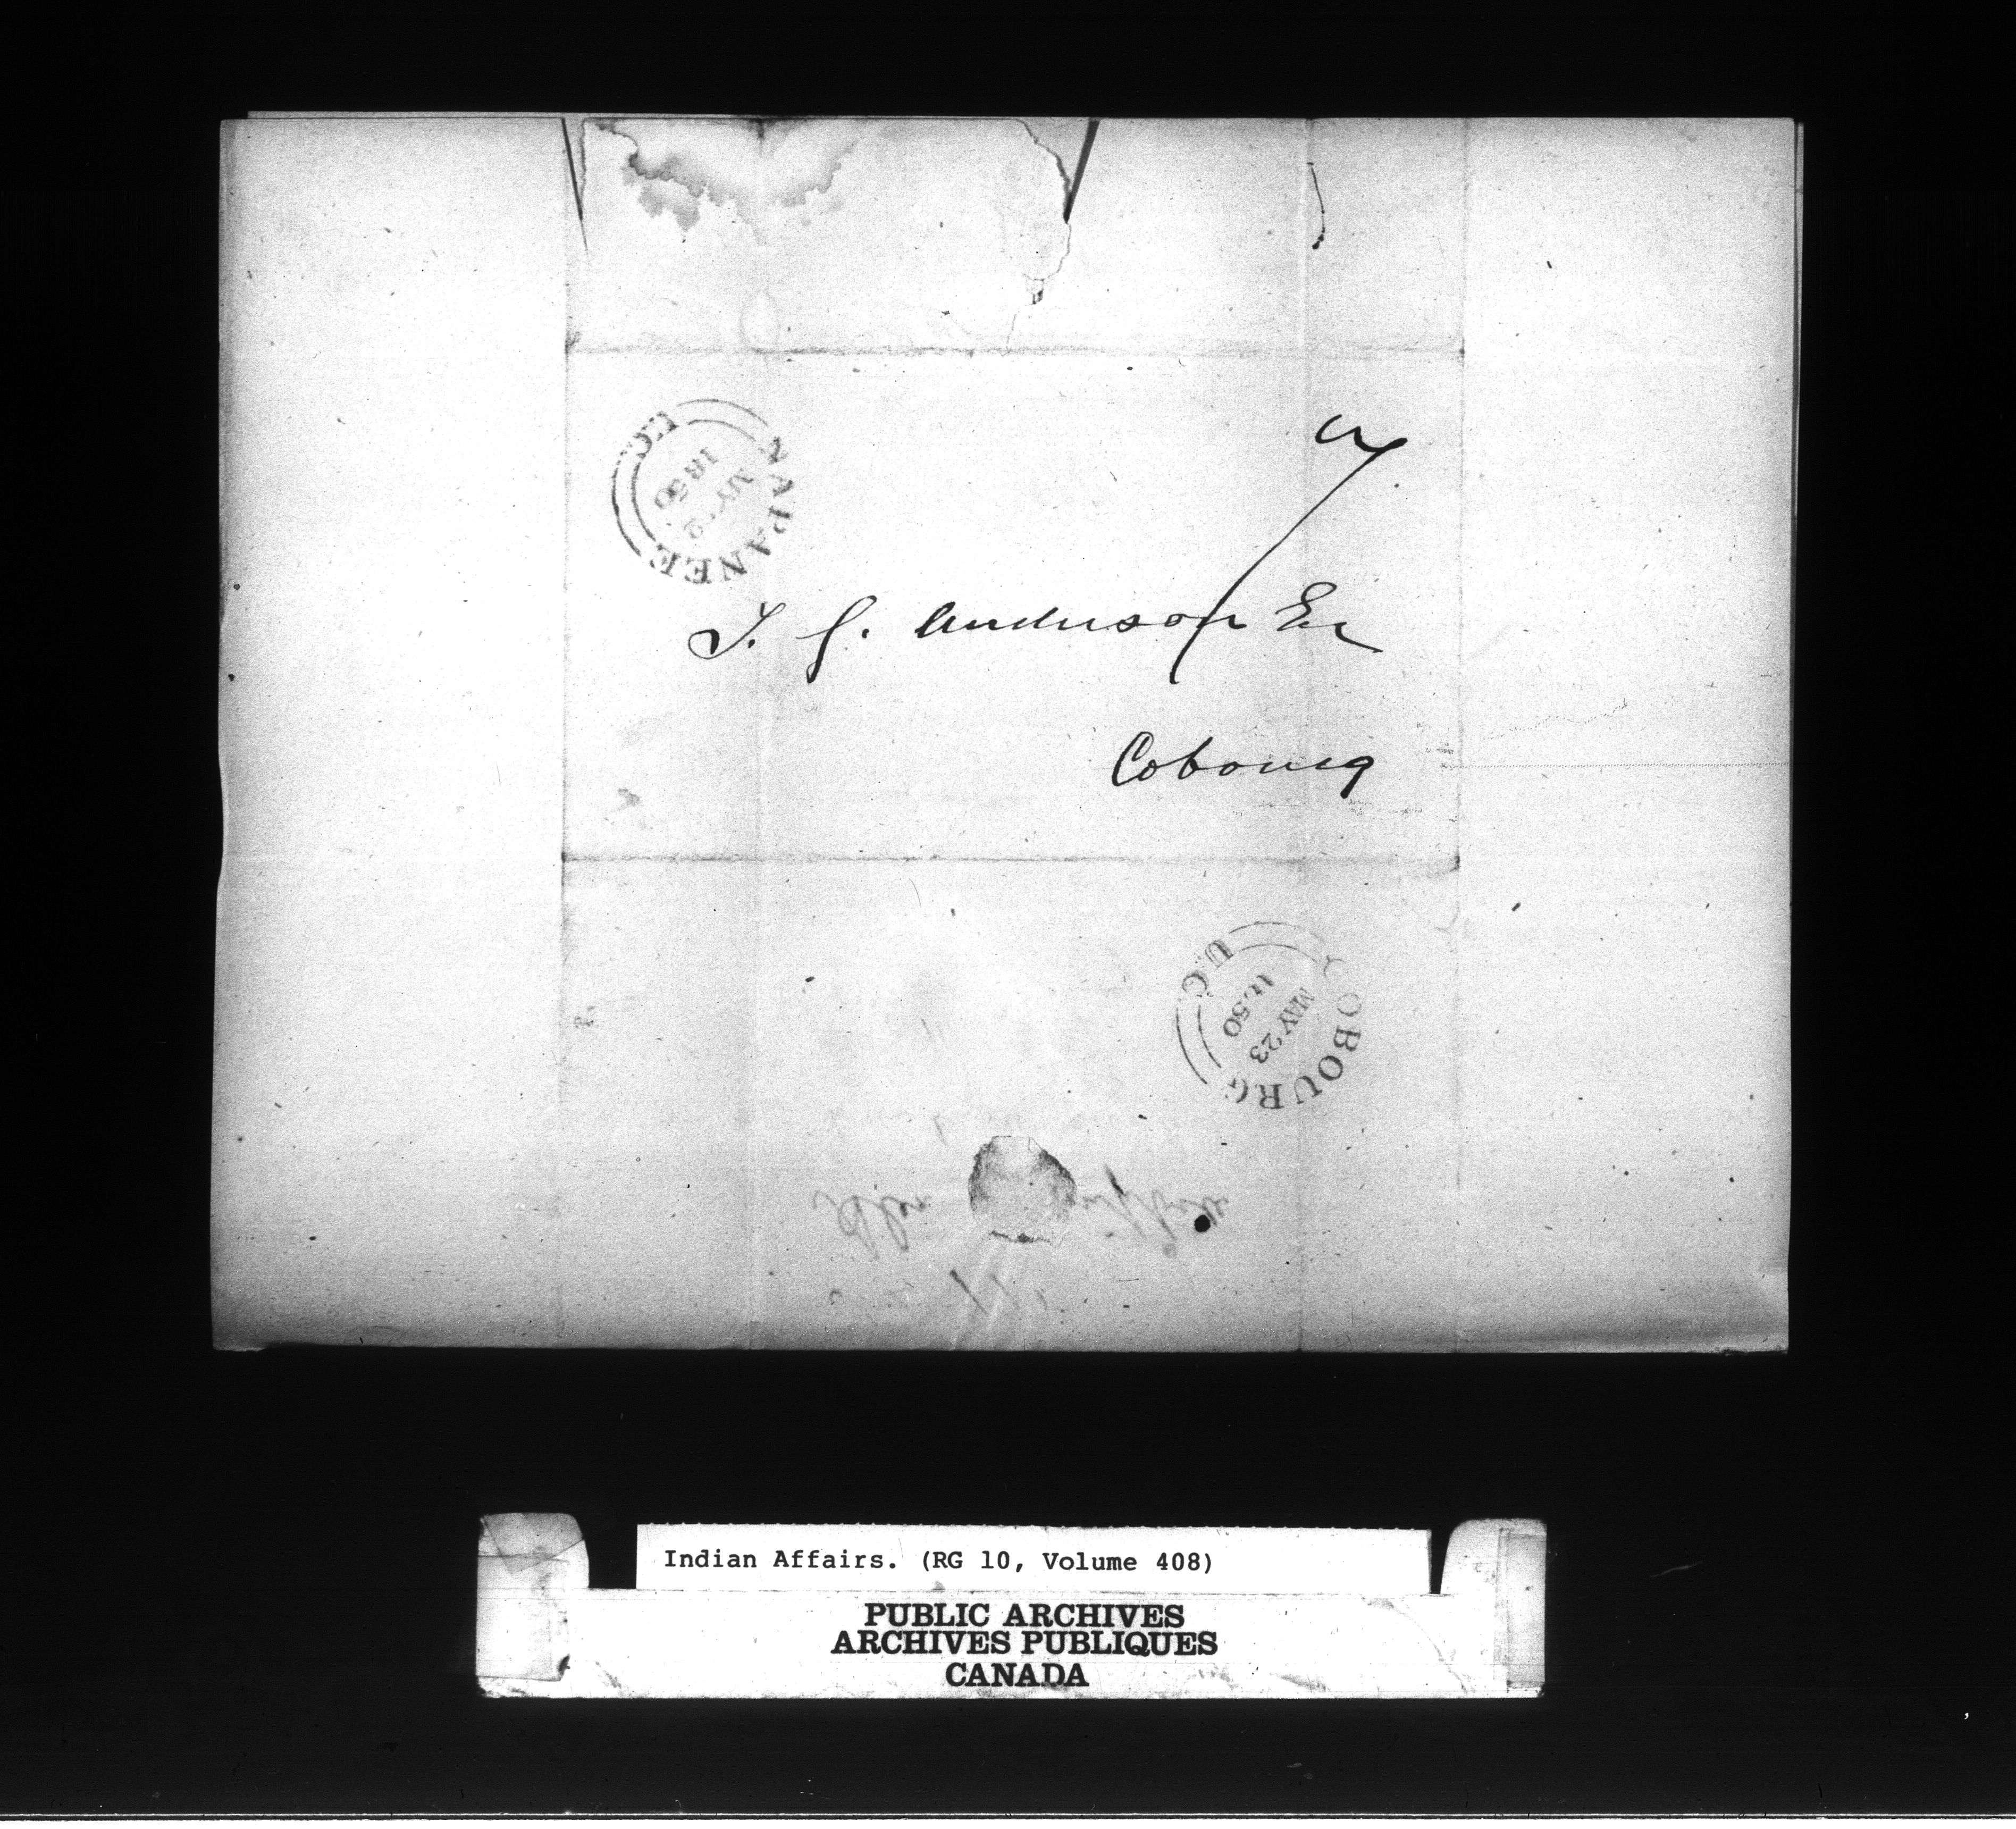 NAPANEE
U.C.
MY 2
1850
T. G. Anderson Esr
Cobourg
COBOURG
U.C.
MAY 23
1850
Indian Affairs. (RG 10, Volume 408)
PUBLIC ARCHIVES
ARCHIVES PUBLIQUES
CANADA